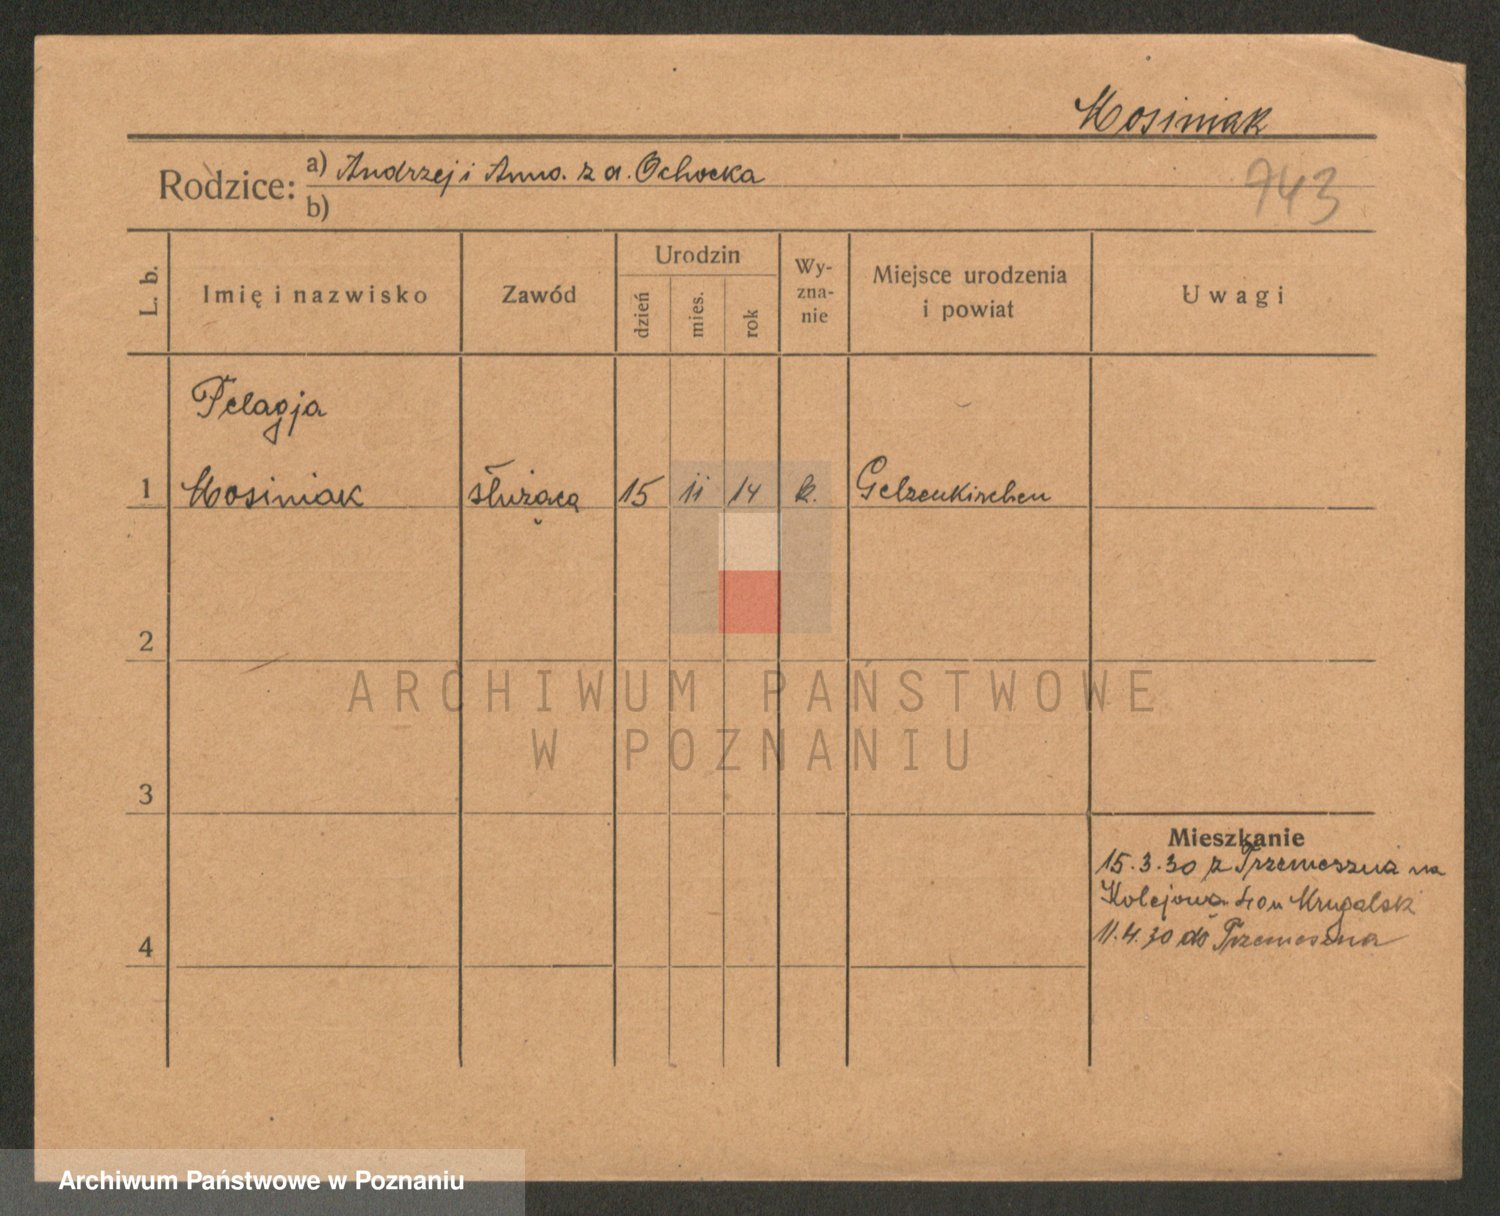 Mosiniak
Rodzice: a) Andrzej i Anna z d. Ochocka
743
b)
L. b.
Imię i nazwisko
Zawód
Urodzin
dzień
mies.
rok
Wy-
zna-
nie
Miejsce urodzenia
i powiat
Uwagi
Pelagja
1 Mosiniak służąca 15 11 14 k. Gelzenkirchen
2
ARCHIWUM PAŃSTWOWE
W POZNANIU
3
Mieszkanie
15.3.30 z Trzemeszna na
Kolejowa 40 u Mrugalski
4
11.4.30 do Trzemeszna
Archiwum Państwowe w Poznaniu